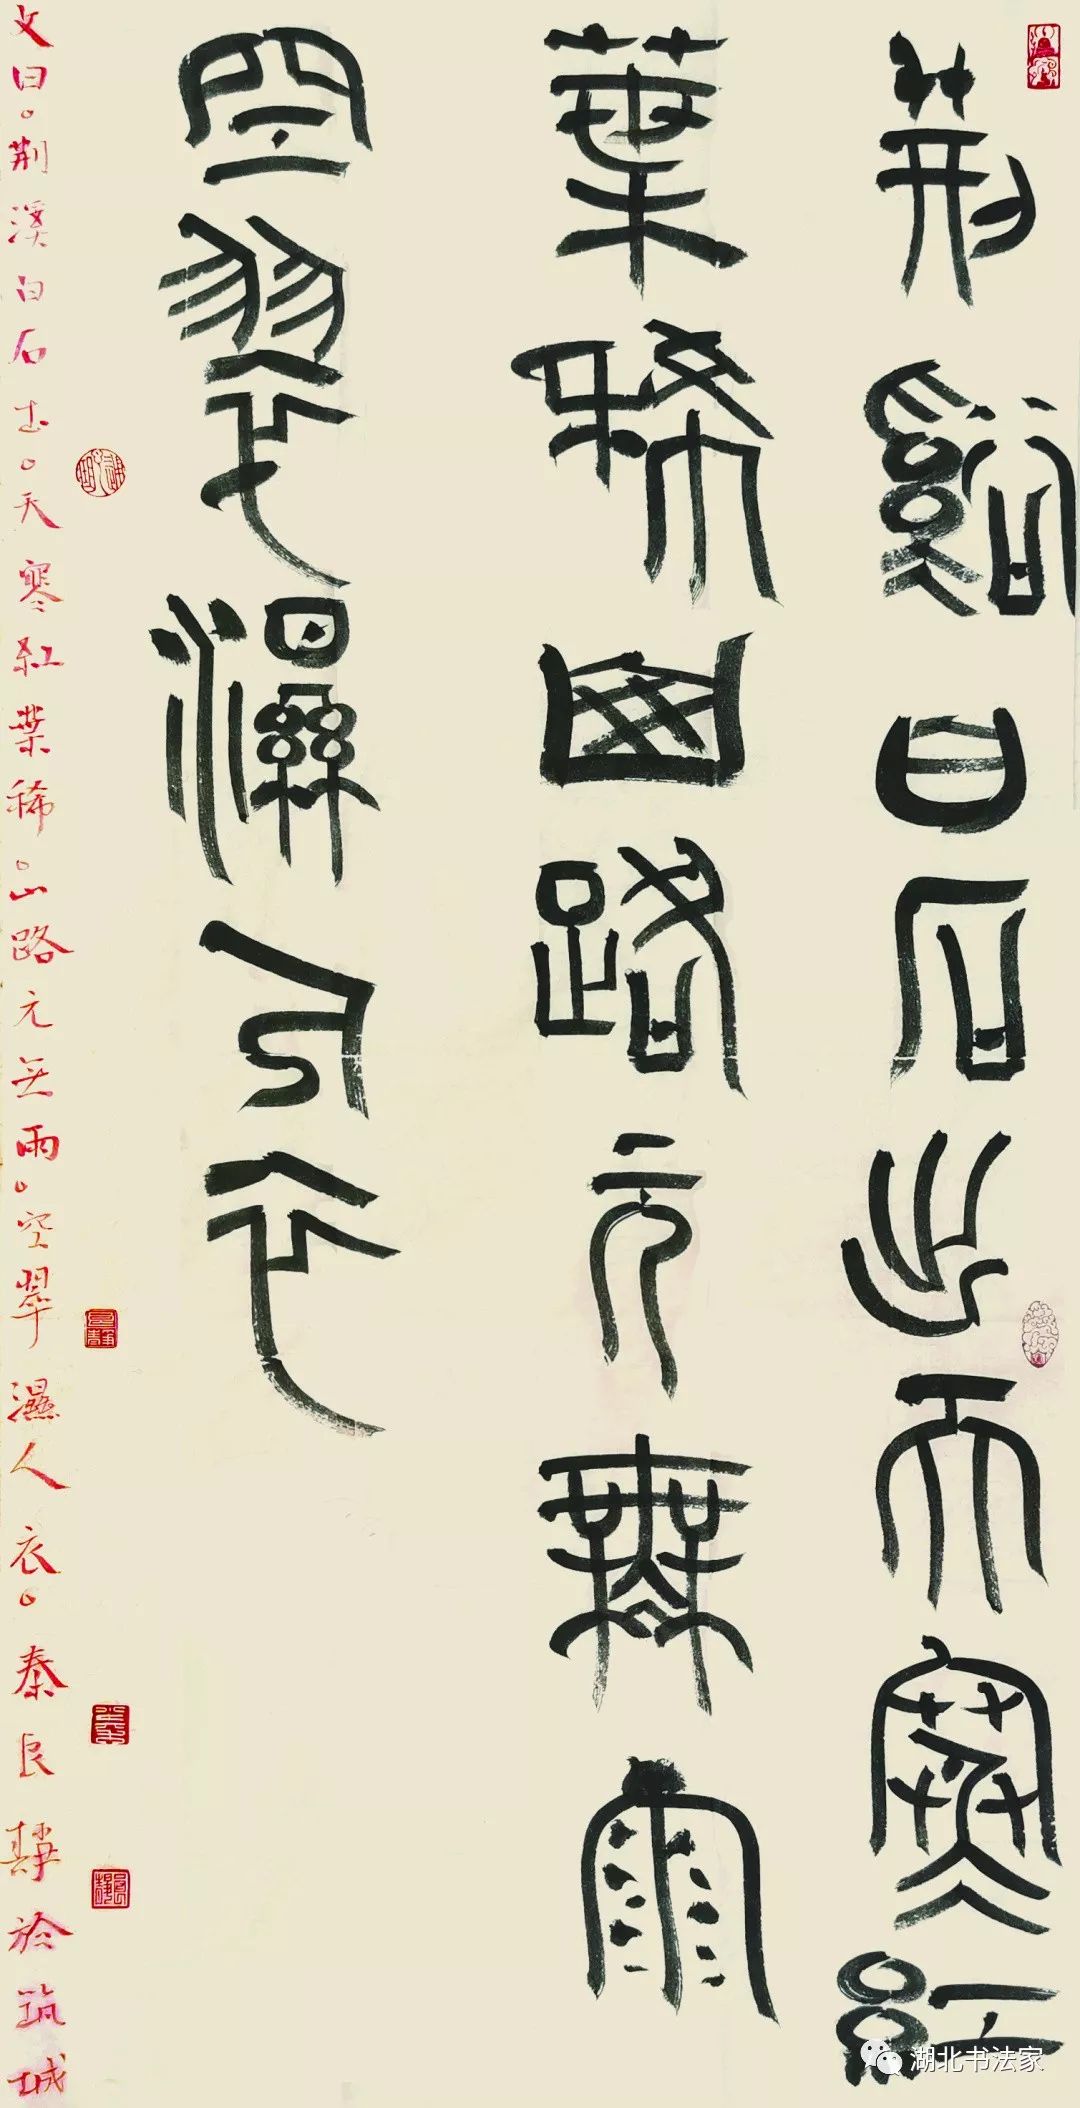 荆谿白石出天寒紅
葉稀山路元無雨
空翠濕人衣
文曰。荆溪白石出。天寒紅葉稀。山路元無雨。空翠濕人衣。秦良靜於筑城
湖北书法家